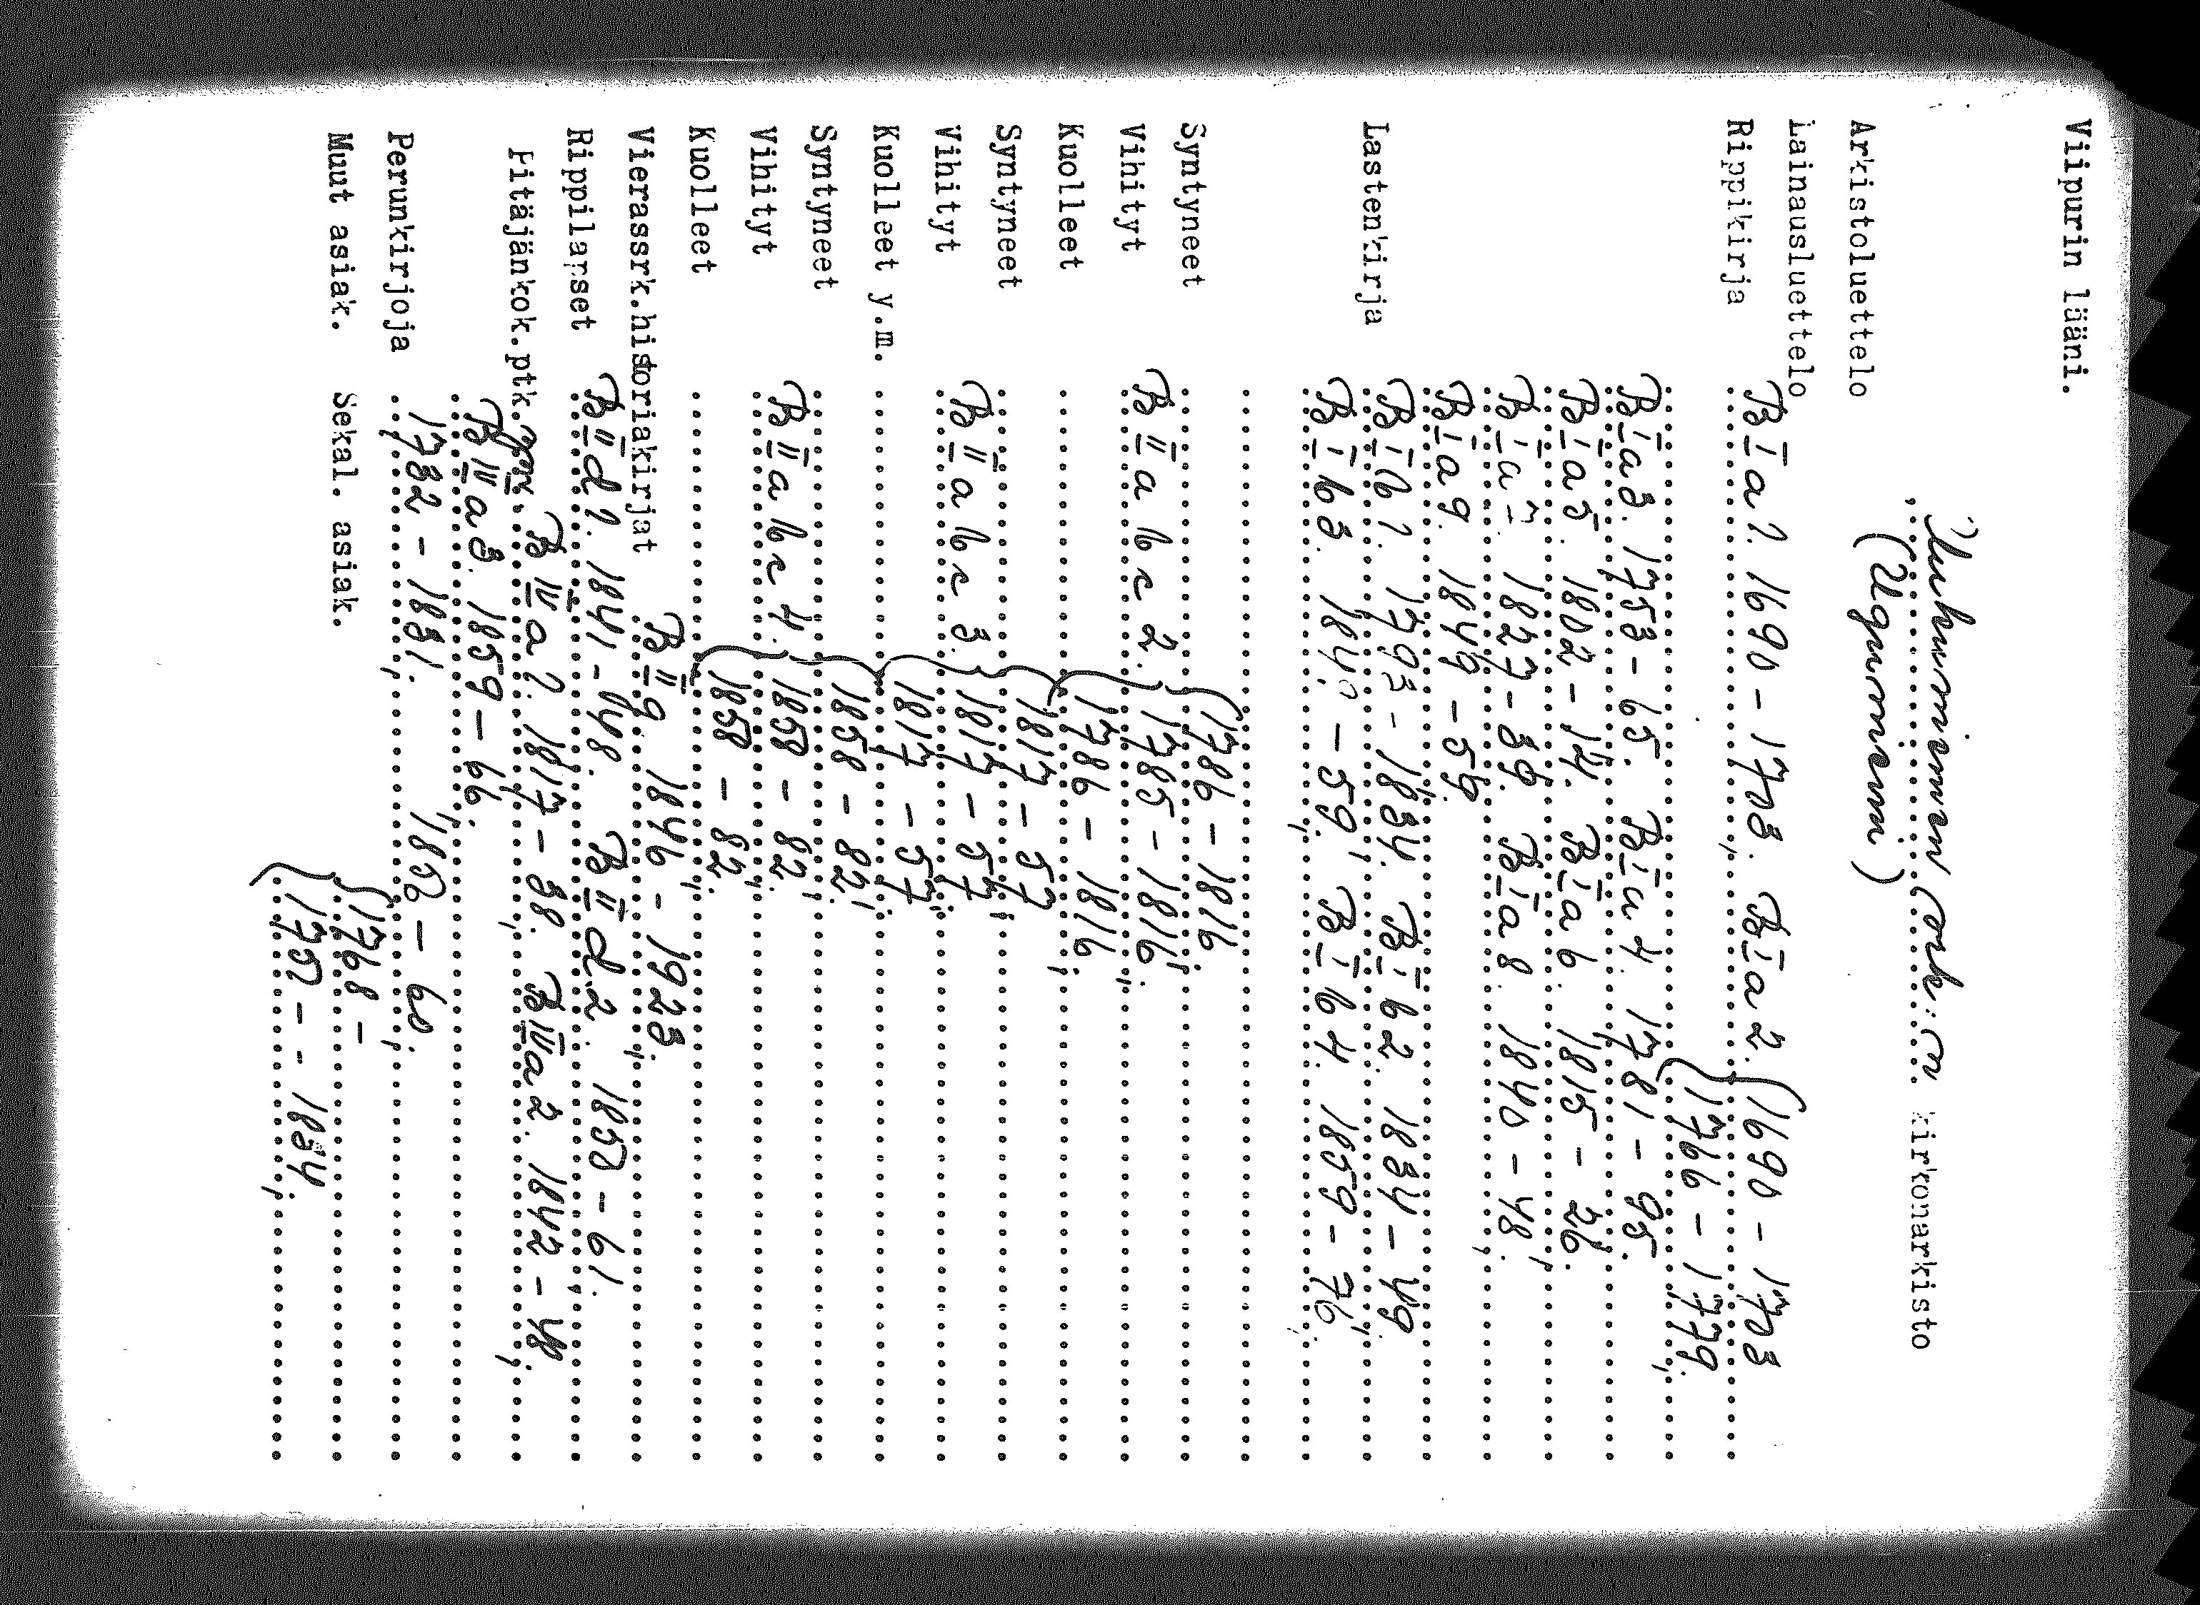 Viipurin lääni.
Uukuniemen srk:n kirkonarkisto
(Uguniemi)
Arkistoluettelo
Lainausluettelo
Rippikirja B I a 1. 1690 - 1703. B I a 2. (1690 - 1703
(1766 - 1779.
B I a 3. 1753 - 65. B I a 4. 1781 - 95.
B I a 5. 1802 - 14. B I a 6. 1815 - 26.
B I a 7. 1827 - 39. B I a 8. 1840 - 48.
B I a 9. 1849 - 59.
Lastenkirja B I b 1. 1793 - 1834. B I b 2. 1834 - 49.
B I b 3. 1849 - 59. B I b 4. 1859 - 76.
Syntyneet (1786 - 1816.
Vihityt B II a b c 2. 1785 - 1816.
Kuolleet 1786 - 1816.
Syntyneet 1817 - 57
Vihityt B II a b c 3. 1817 - 57.
Kuolleet y.m. 1817 - 57
Syntyneet 1858 - 82.
Vihityt B II a b c 4. 1858 - 82.
Kuolleet 1858 - 82.
Vierassrk.historiakirjat B II g. 1846 - 1923.
Rippilapset B II d 1. 1841 - 48. B II d 2. 1850 - 61.
Pitäjänkok.ptk. B III a 1. 1817 - 38. B III a 2. 1842 - 48.
B III a 3. 1859 - 66.
Perunkirjoja 1782 - 1831. 1852 - 60.
Muut asiak. Sekal. asiak. (1768 -
(1752 - - 1834.